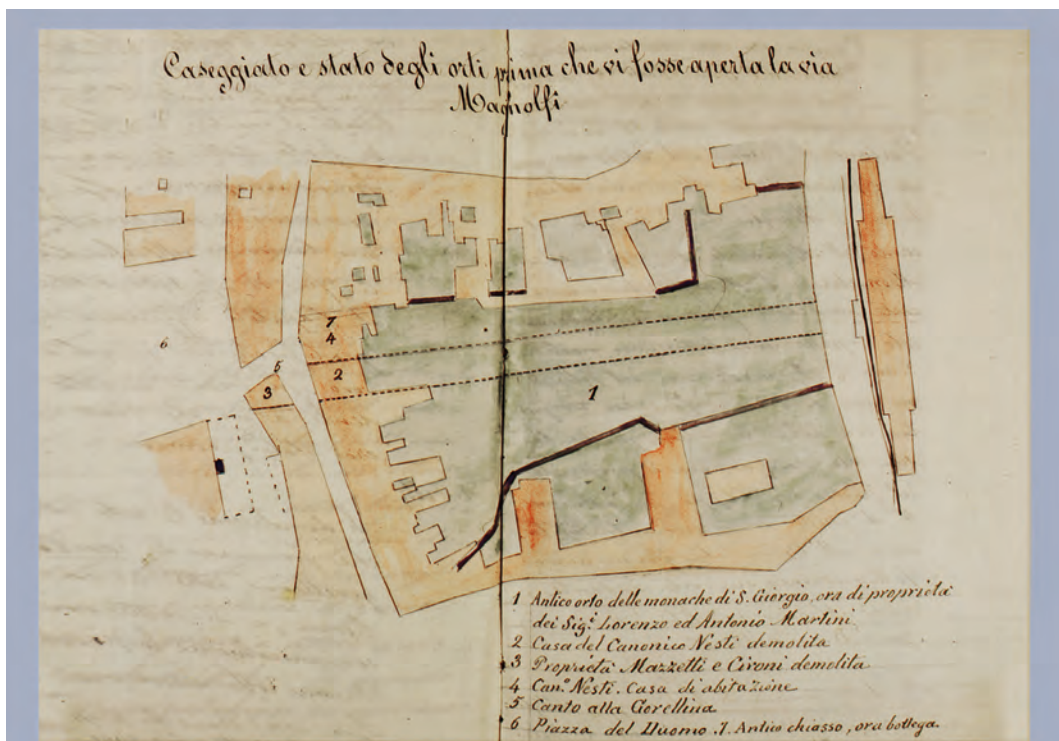 Caseggiato e stato degli orti prima che vi fosse aperta la via
Magnolfi
7
4
6
5
2
3
1
1 Antico orto delle monache di S. Giorgio, ora di proprietà
dei Sigⁱ Lorenzo ed Antonio Martini
2 Casa del Canonico Nesti demolita
3 Proprietà Mazzetti e Cironi demolita
4 Canº Nesti. Casa di abitazione
5 Canto alla Gorellina
6 Piazza del Duomo .7. Antico chiasso, ora bottega.